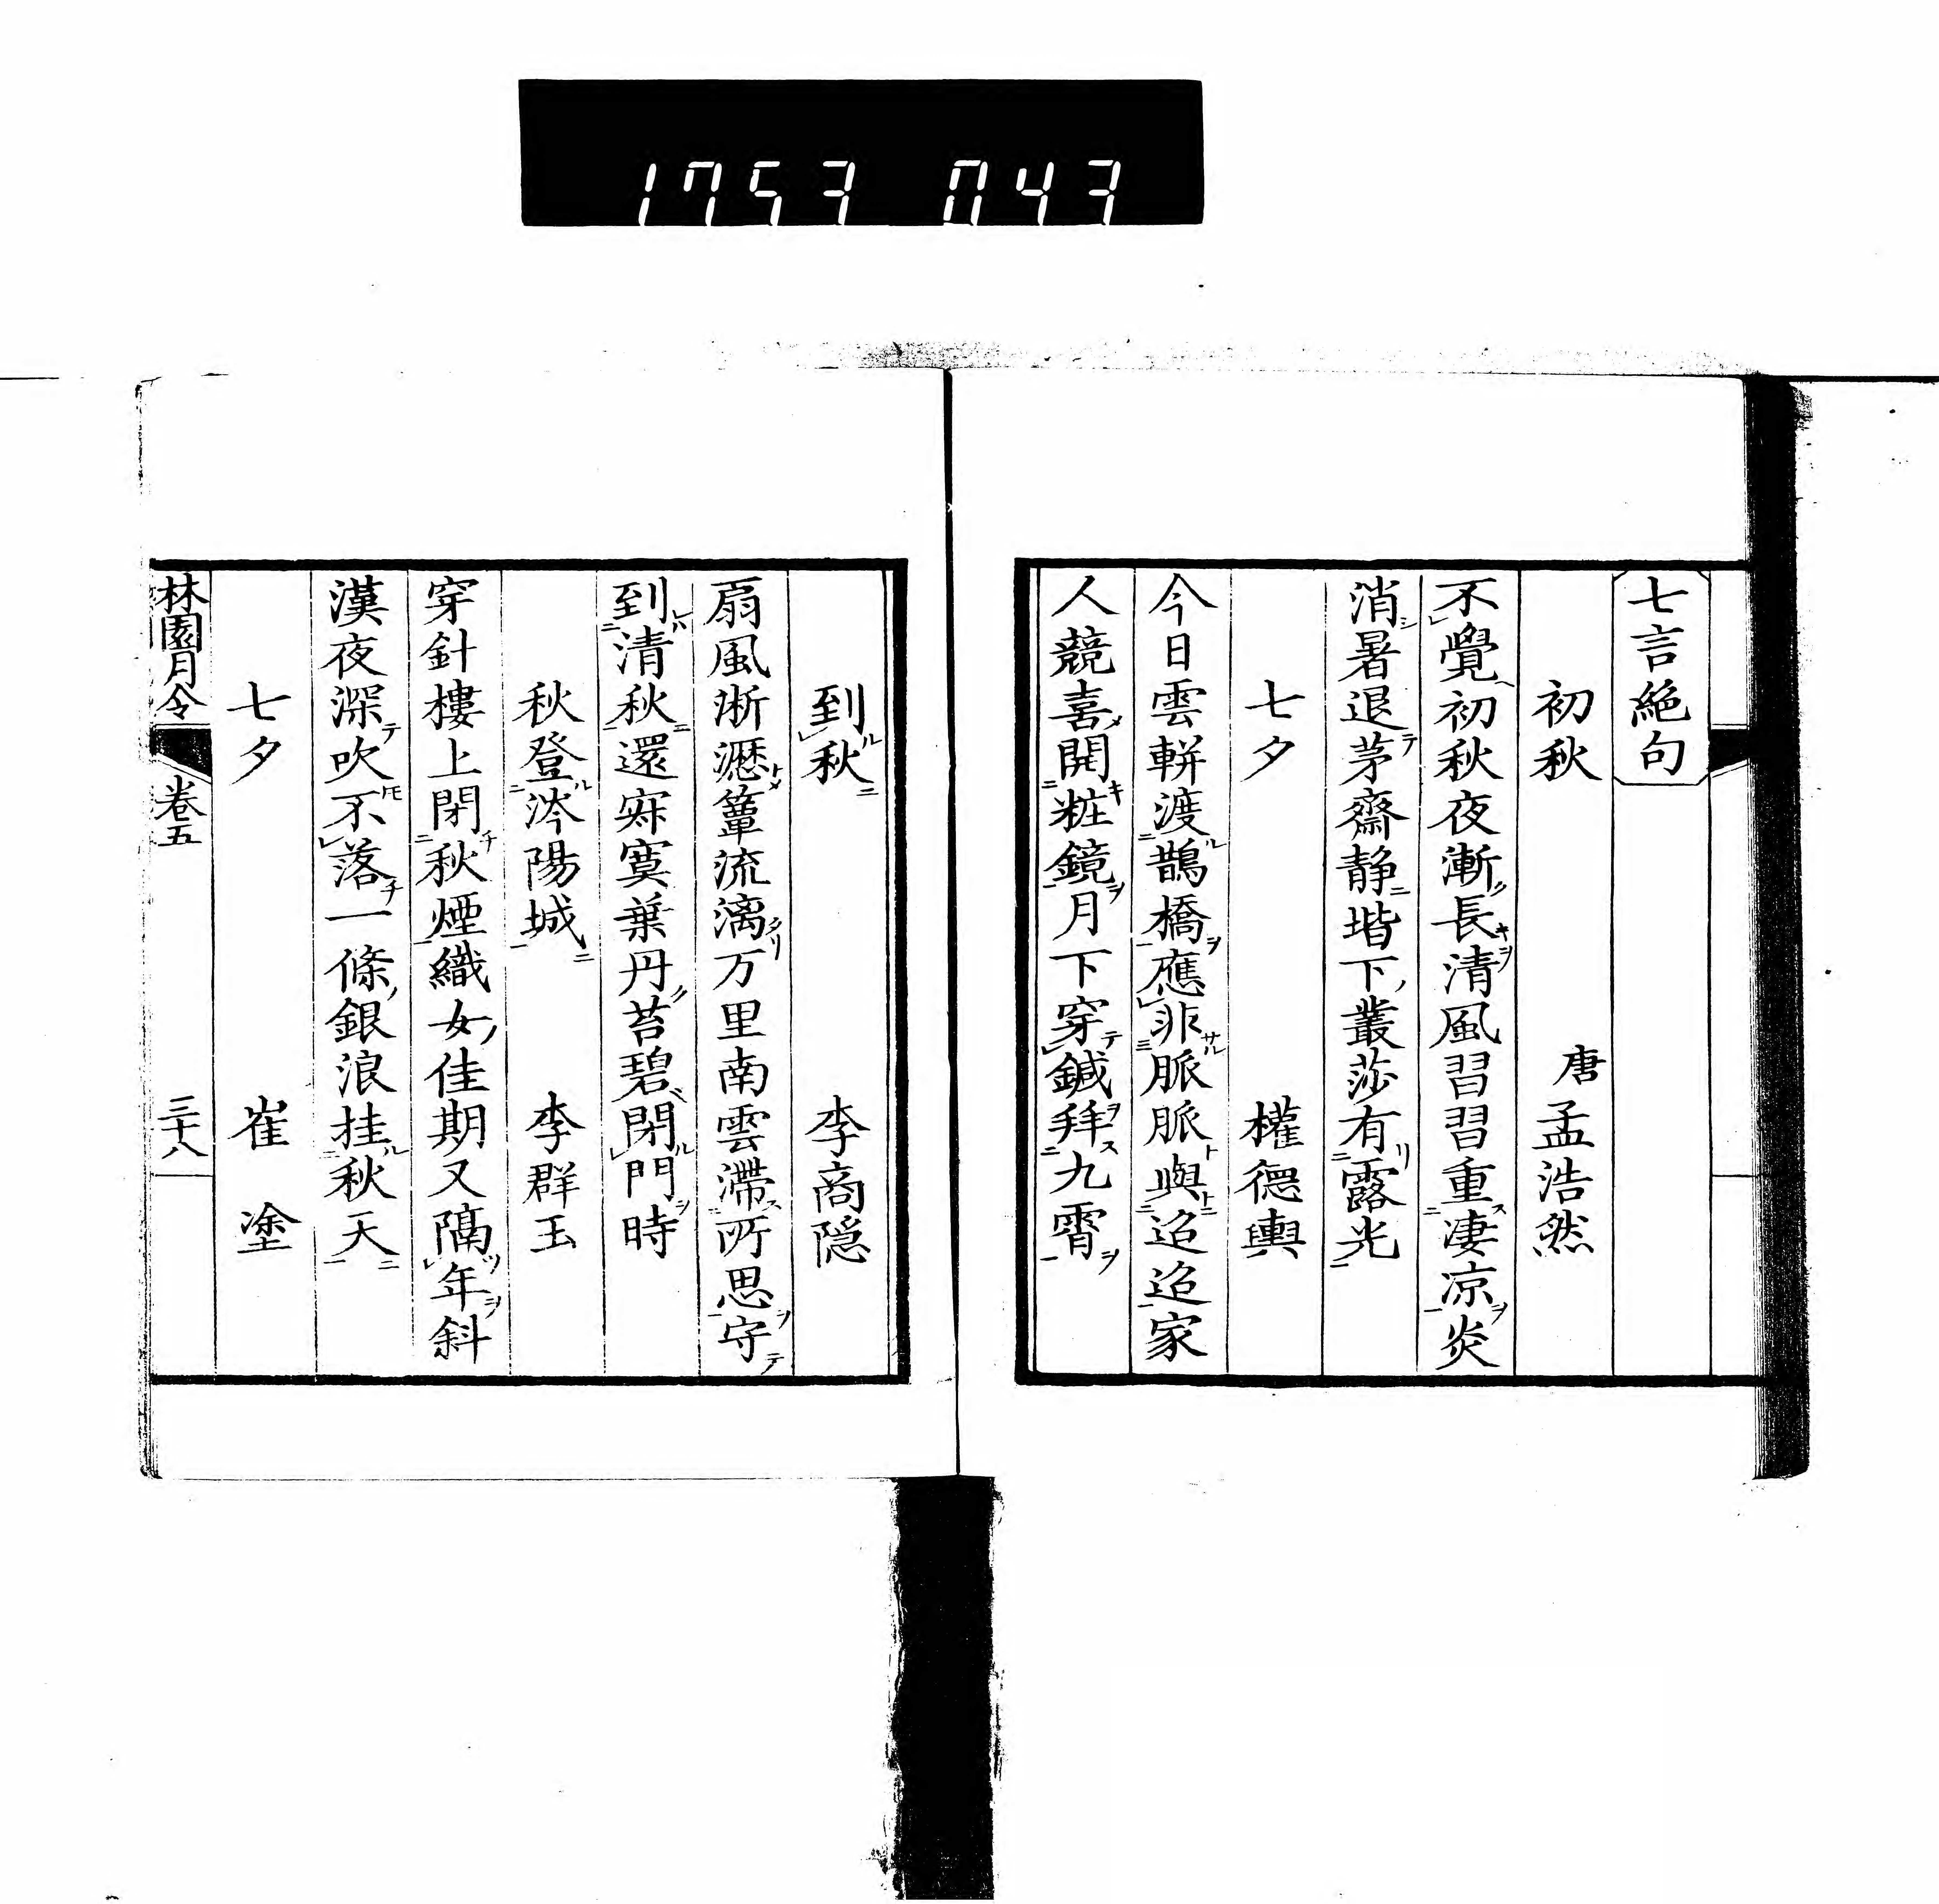 1753 043
七言絶句
初秋　唐孟浩然
不覺初秋夜漸長清風習習重凄凉炎
消暑退茅齋静堦下叢莎有露光
七夕　權德輿
今日雲軿渡鵲橋應非脈脈與迢迢家
人競喜開粧鏡月下穿鍼拜九霄
到秋　李商隠
扇風淅瀝簟流漓万里南雲滯所思守
到清秋還寂寞葉丹苔碧閉門時
秋登涔陽城　李群玉
穿針樓上閉秋煙織女佳期又隔年斜
漢夜深吹不落一條銀浪挂秋天
七夕　崔塗
林園月令　卷五　三十八